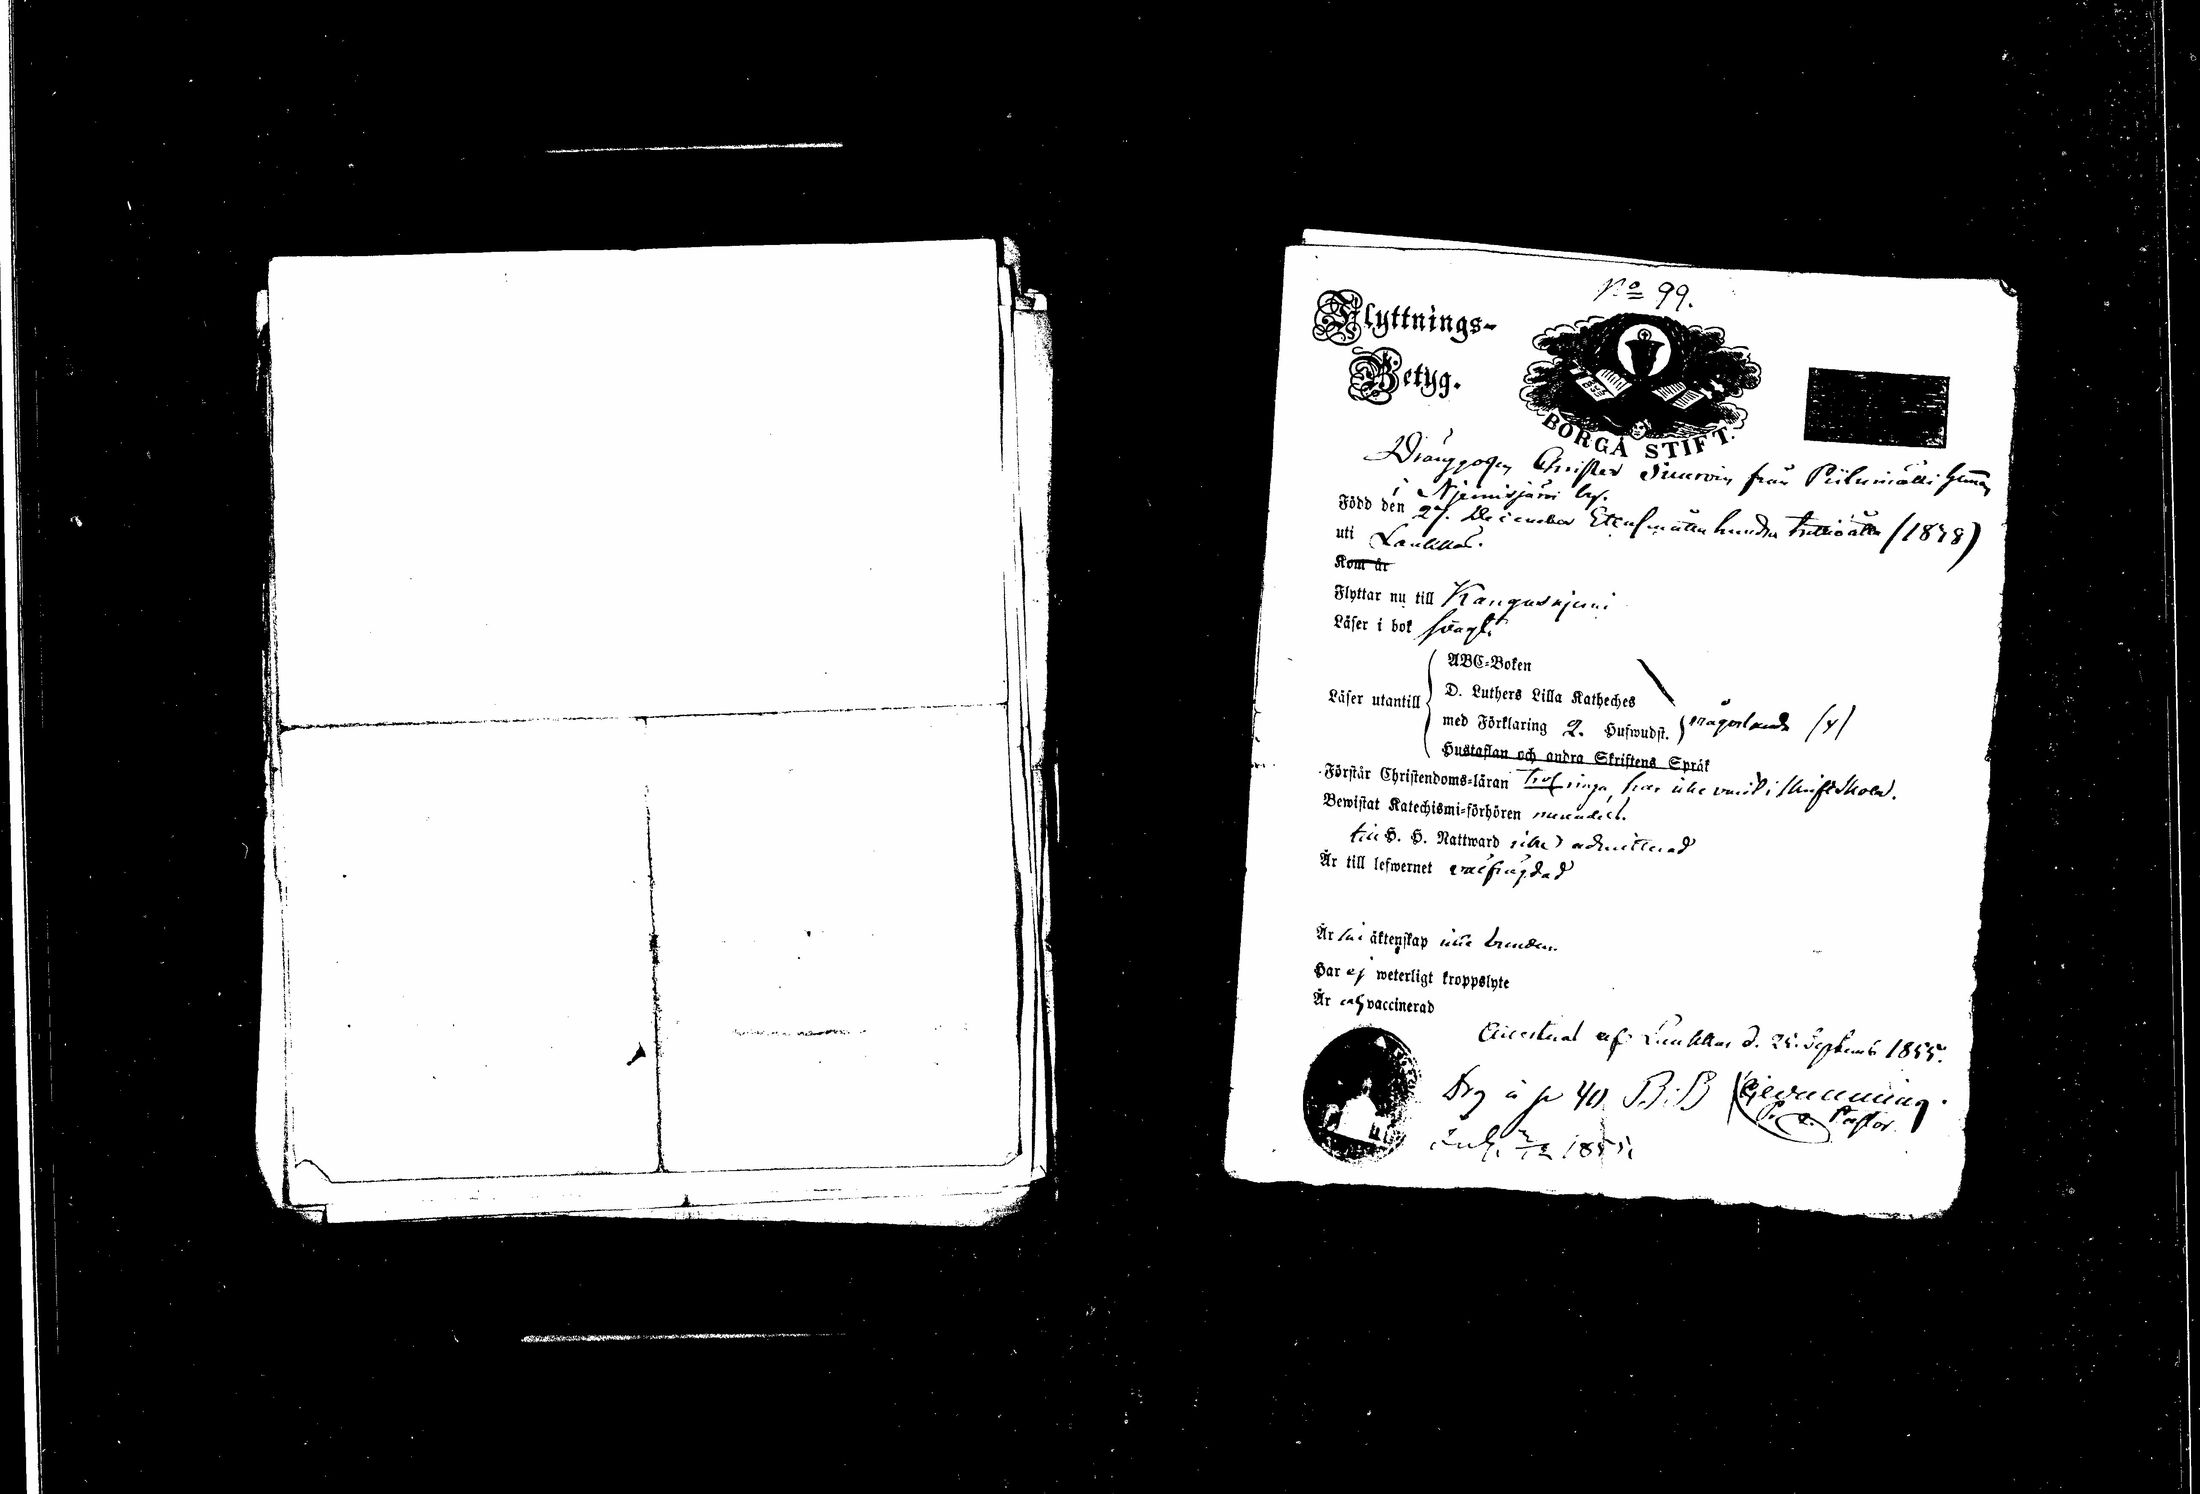 No 99.
Flyttnings-
Betyg.
BORGÅ STIFT.
Dränggossen Christer från
i Njemisjärvi by.
Född den 27. December Ettusen åtta hundra Trettioåtta (1838)
uti Laukkas.
Kom år
Flyttar nu till Kangasnjemi
Läser i bok svagt.
ABC-Boken
Läser utantill D. Luthers Lilla Katheches
med Förklaring 2. Hufwudst. någorlunda (4)
Hustaflan och andra Skriftens Språk
Förstår Christendoms-läran ringa, har icke varit i Skriftskola.
Bewistat Katechismi-förhören
till H. H. Nattward icke admitterad
Är till lefwernet välfrägdad
Är till äktenskap icke bunden.
Har ej weterligt kroppslyte
Är och vaccinerad
Attesteras af Laukkas d. 25. Septemb. 1855.
40 B:B
Pastor
1855.